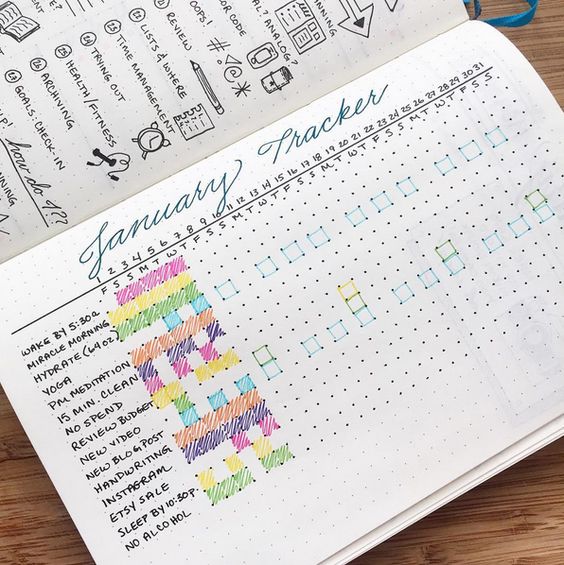 GOALS: CHECK-IN
ARCHIVING
HEALTH/FITNESS
TRYING OUT
TIME MANAGEMENT
LISTS & WHERE
REVIEW
OOPS!
CODE
ANALOG?
how do I??
January Tracker
1 2 3 4 5 6 7 8 9 10 11 12 13 14 15 16 17 18 19 20 21 22 23 24 25 26 27 28 29 30 31
F S S M T W T F S S M T W T F S S M T W T F S S M T W T F S S
WAKE BY 5:30a
MIRACLE MORNING
HYDRATE (64 oz)
YOGA
PM MEDITATION
15 MIN. CLEAN
NO SPEND
REVIEW BUDGET
NEW VIDEO
NEW BLOG POST
HANDWRITING
INSTAGRAM
ETSY SALE
SLEEP BY 10:30p.
NO ALCOHOL